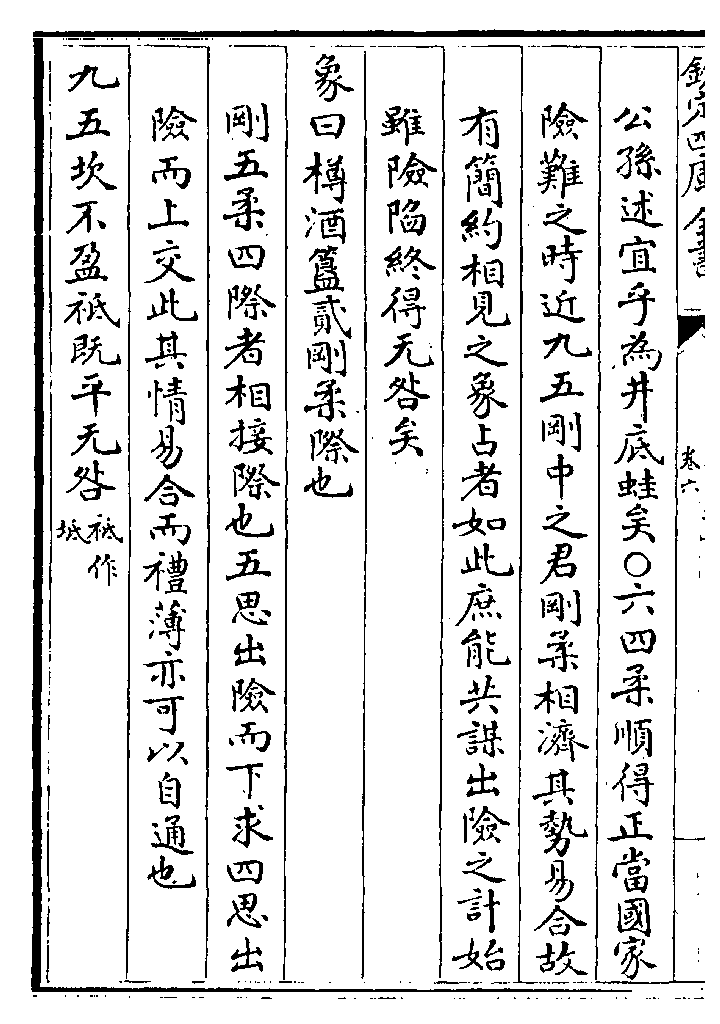 欽定四庫全書
卷六
公孫述宜乎為井底蛙矣○六四柔順得正當國家
險難之時近九五剛中之君剛柔相濟其勢易合故
有簡約相見之象占者如此庶能共謀出險之計始
雖險陷終得无咎矣
象曰樽酒簋貳剛柔際也
剛五柔四際者相接際也五思出險而下求四思出
險而上交此其情易合而禮薄亦可以自通也
九五坎不盈祗既平无咎
祗作
坻